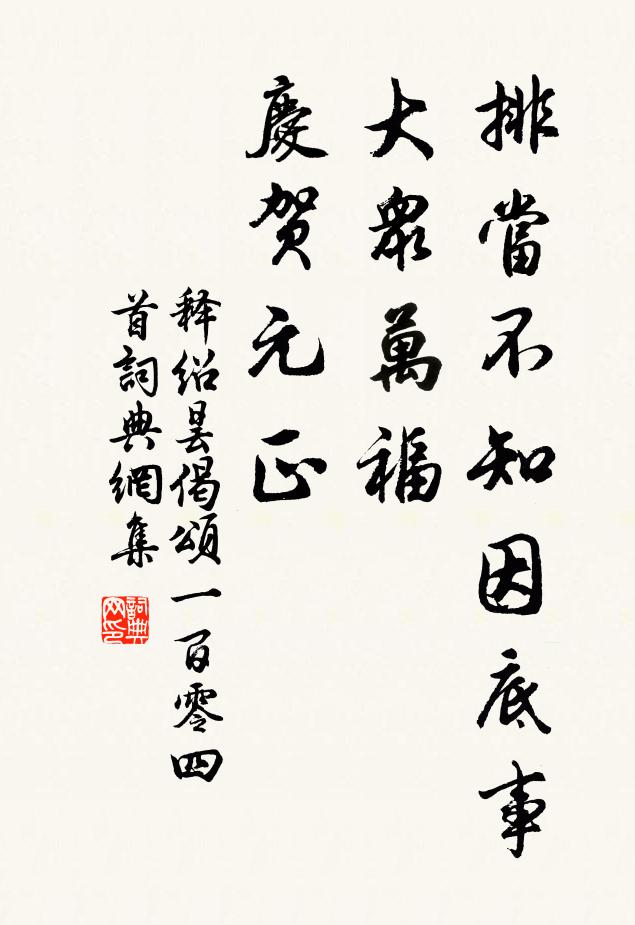 排當不知因底事
大衆萬福
慶贺元正
释紹昙偈頌一百零四
首詞典網集
詞典
网印